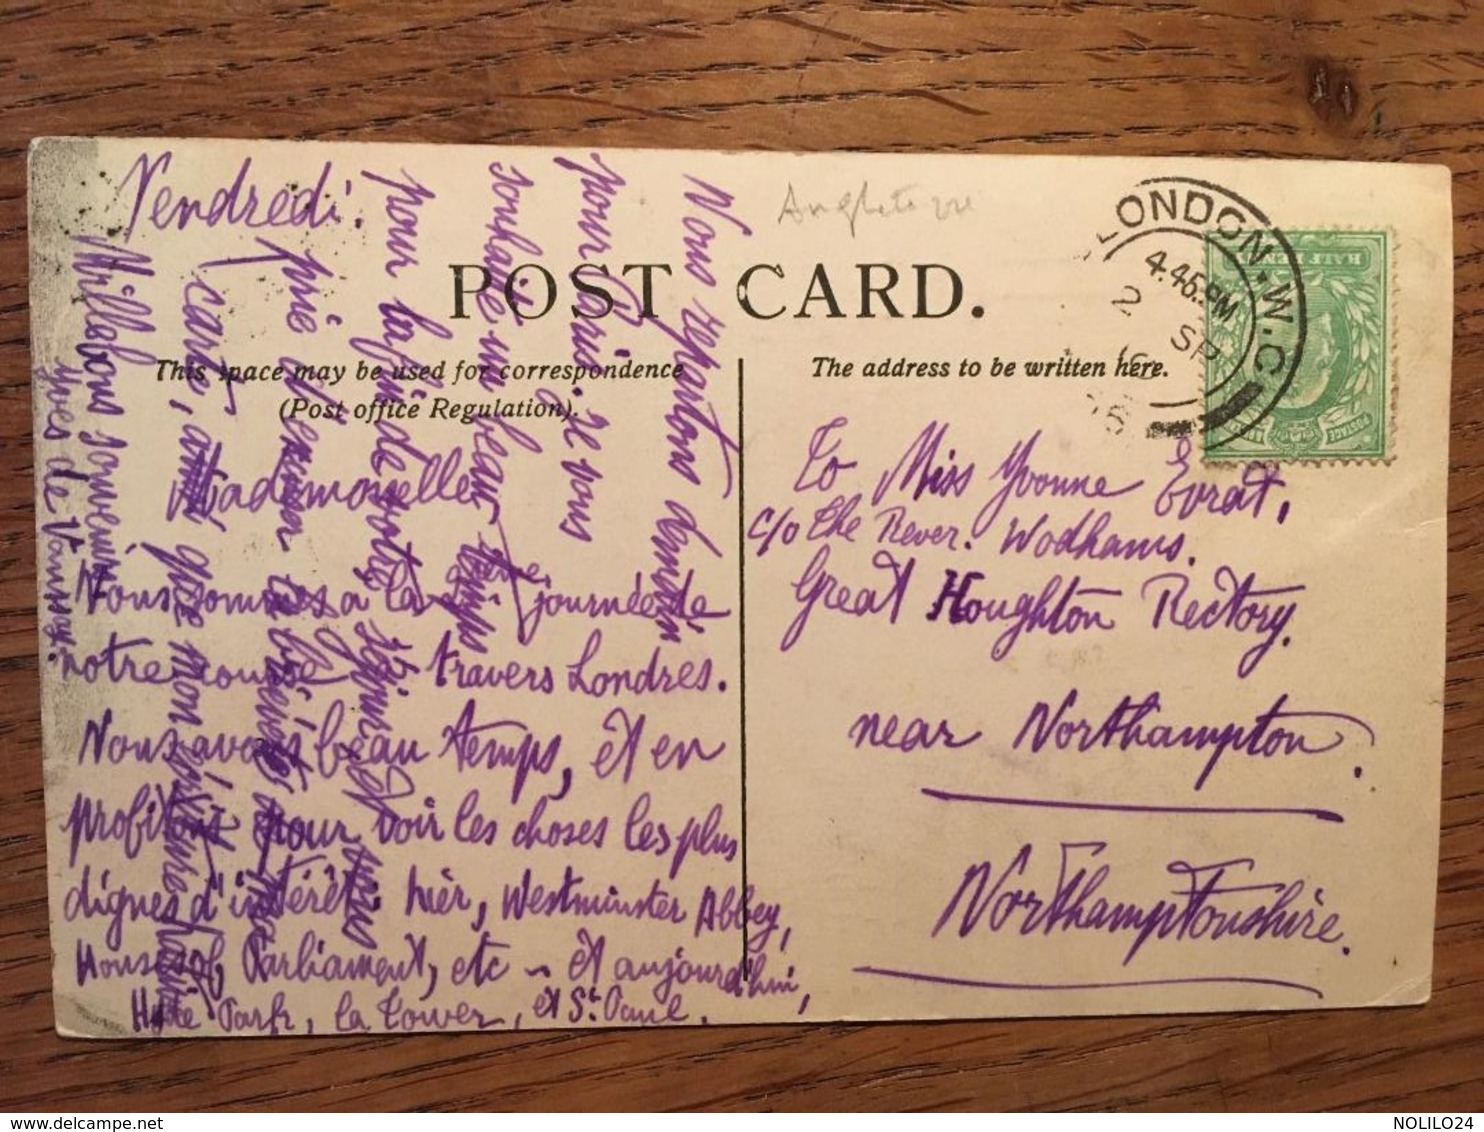 Angleterre
POST CARD.
This space may be used for correspondence
(Post office Regulation).
The address to be written here.
LONDON.W.C.
4.45.PM
2 SP
HALF PENNY
POSTAGE
Vendredi.
Mademoiselle
Nous sommes à la journée de
notre course à travers Londres.
Nous avons beau temps, et en
profitons pour voir les choses les plus
dignes d'intérêt: hier, Westminster Abbey,
House of Parliament, etc – et aujourd'hui,
Hyde Park, la Tower, et St. Paul.
Nous repartons demain
pour Paris. Je vous
souhaite un beau temps
pour la fin de votre séjour, et vous
prie d'excuser la brièveté de ma
carte, ainsi que mon
Millebons souvenirs
Yves de Vannay.
To Miss Yvonne Evrat,
c/o The Rever. Wodhams.
Great Houghton Rectory.
near Northampton.
Northamptonshire.
NOLILO24
delcampe.net